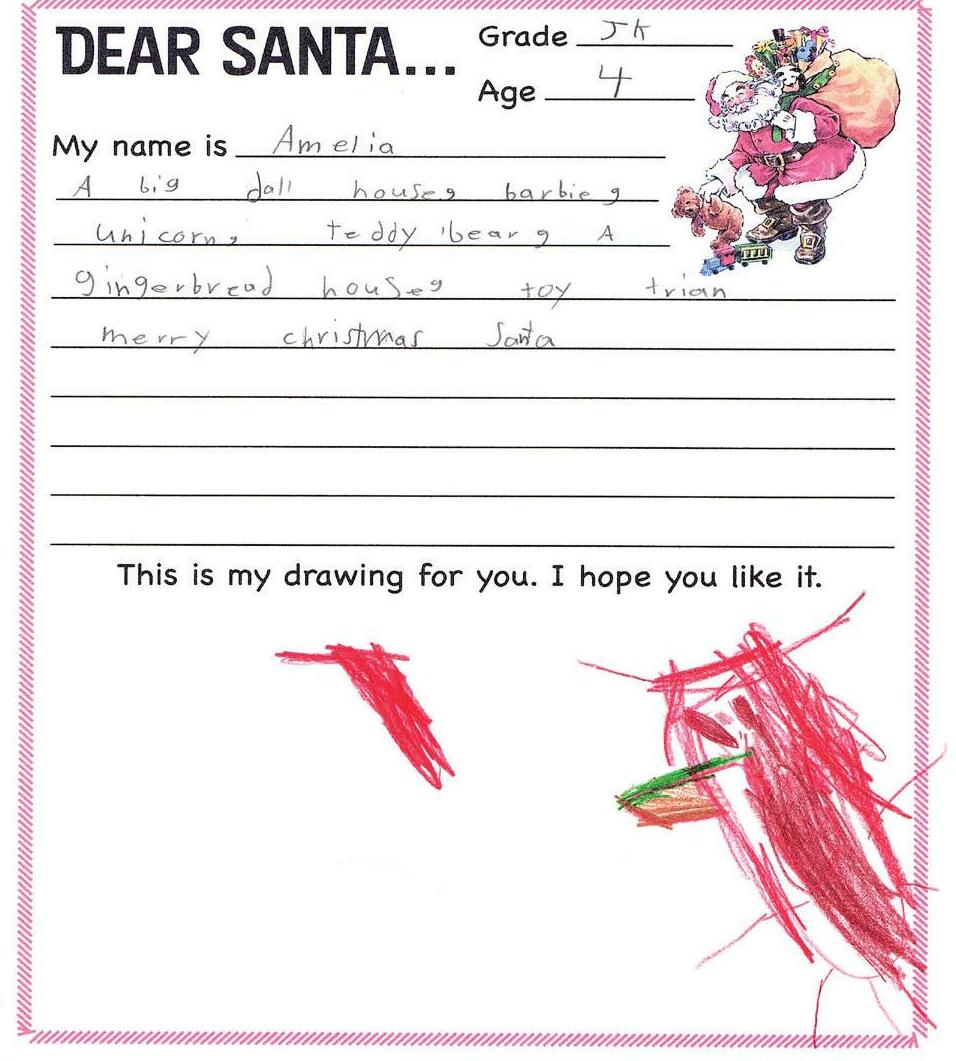 DEAR SANTA...
Grade JK
Age 4
My name is Amelia
A big dall house, barbie,
unicorn, teddy bear, A
gingerbread house, toy trian
merry christmas Santa
This is my drawing for you. I hope you like it.